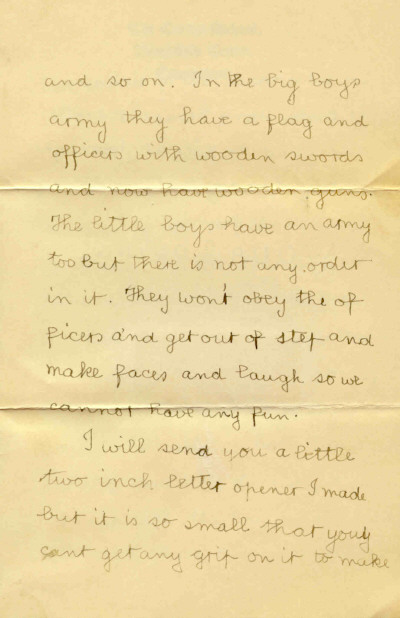 and so on. In the big boys
army they have a flag and
officers with wooden swords
and now have wooden guns.
The little boys have an army
too but there is not any order
in it. They won't obey the of
ficers and get out of step and
make faces and laugh so we
cannot have any fun.
I will send you a little
two inch letter opener I made
but it is so small that you
cant get any grip on it to make